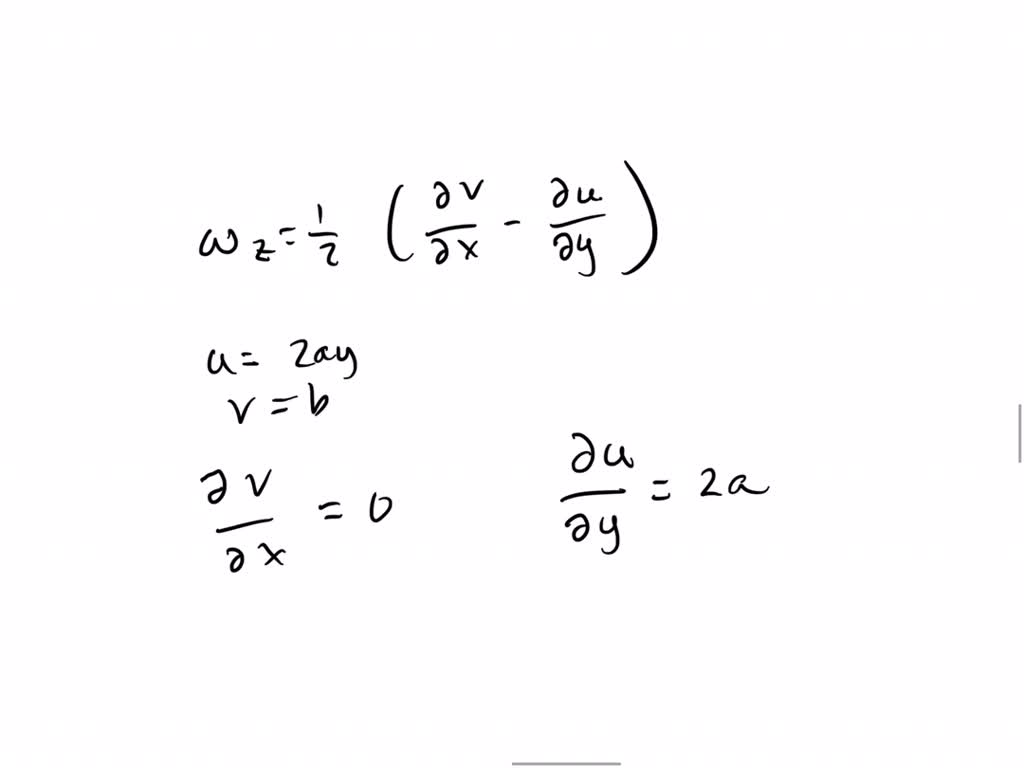 ω_z = 1/2 (∂v/∂x - ∂u/∂y)
u = 2ay
v = b
∂v/∂x = 0 ∂u/∂y = 2a